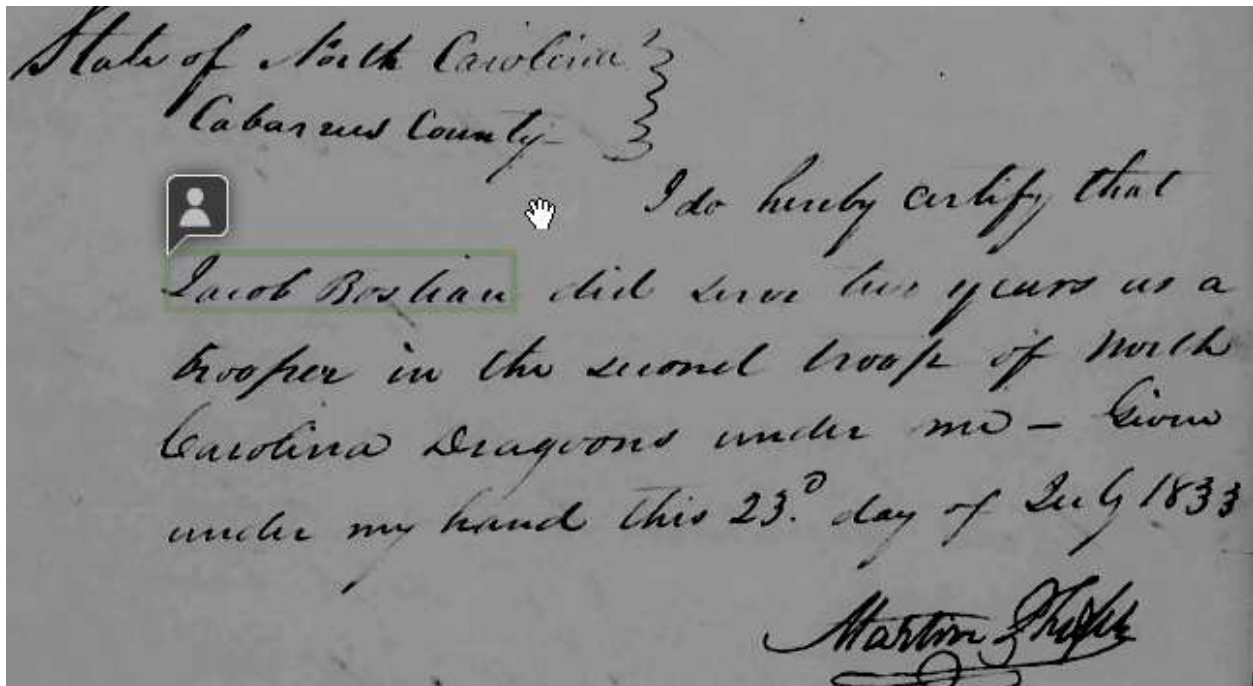 State of North Carolina
Cabarrus County
I do hereby certify that
Jacob Bostian did serve two years as a
trooper in the second troop of North
Carolina Dragoons under me – Given
under my hand this 23.d day of July 1833
Martin